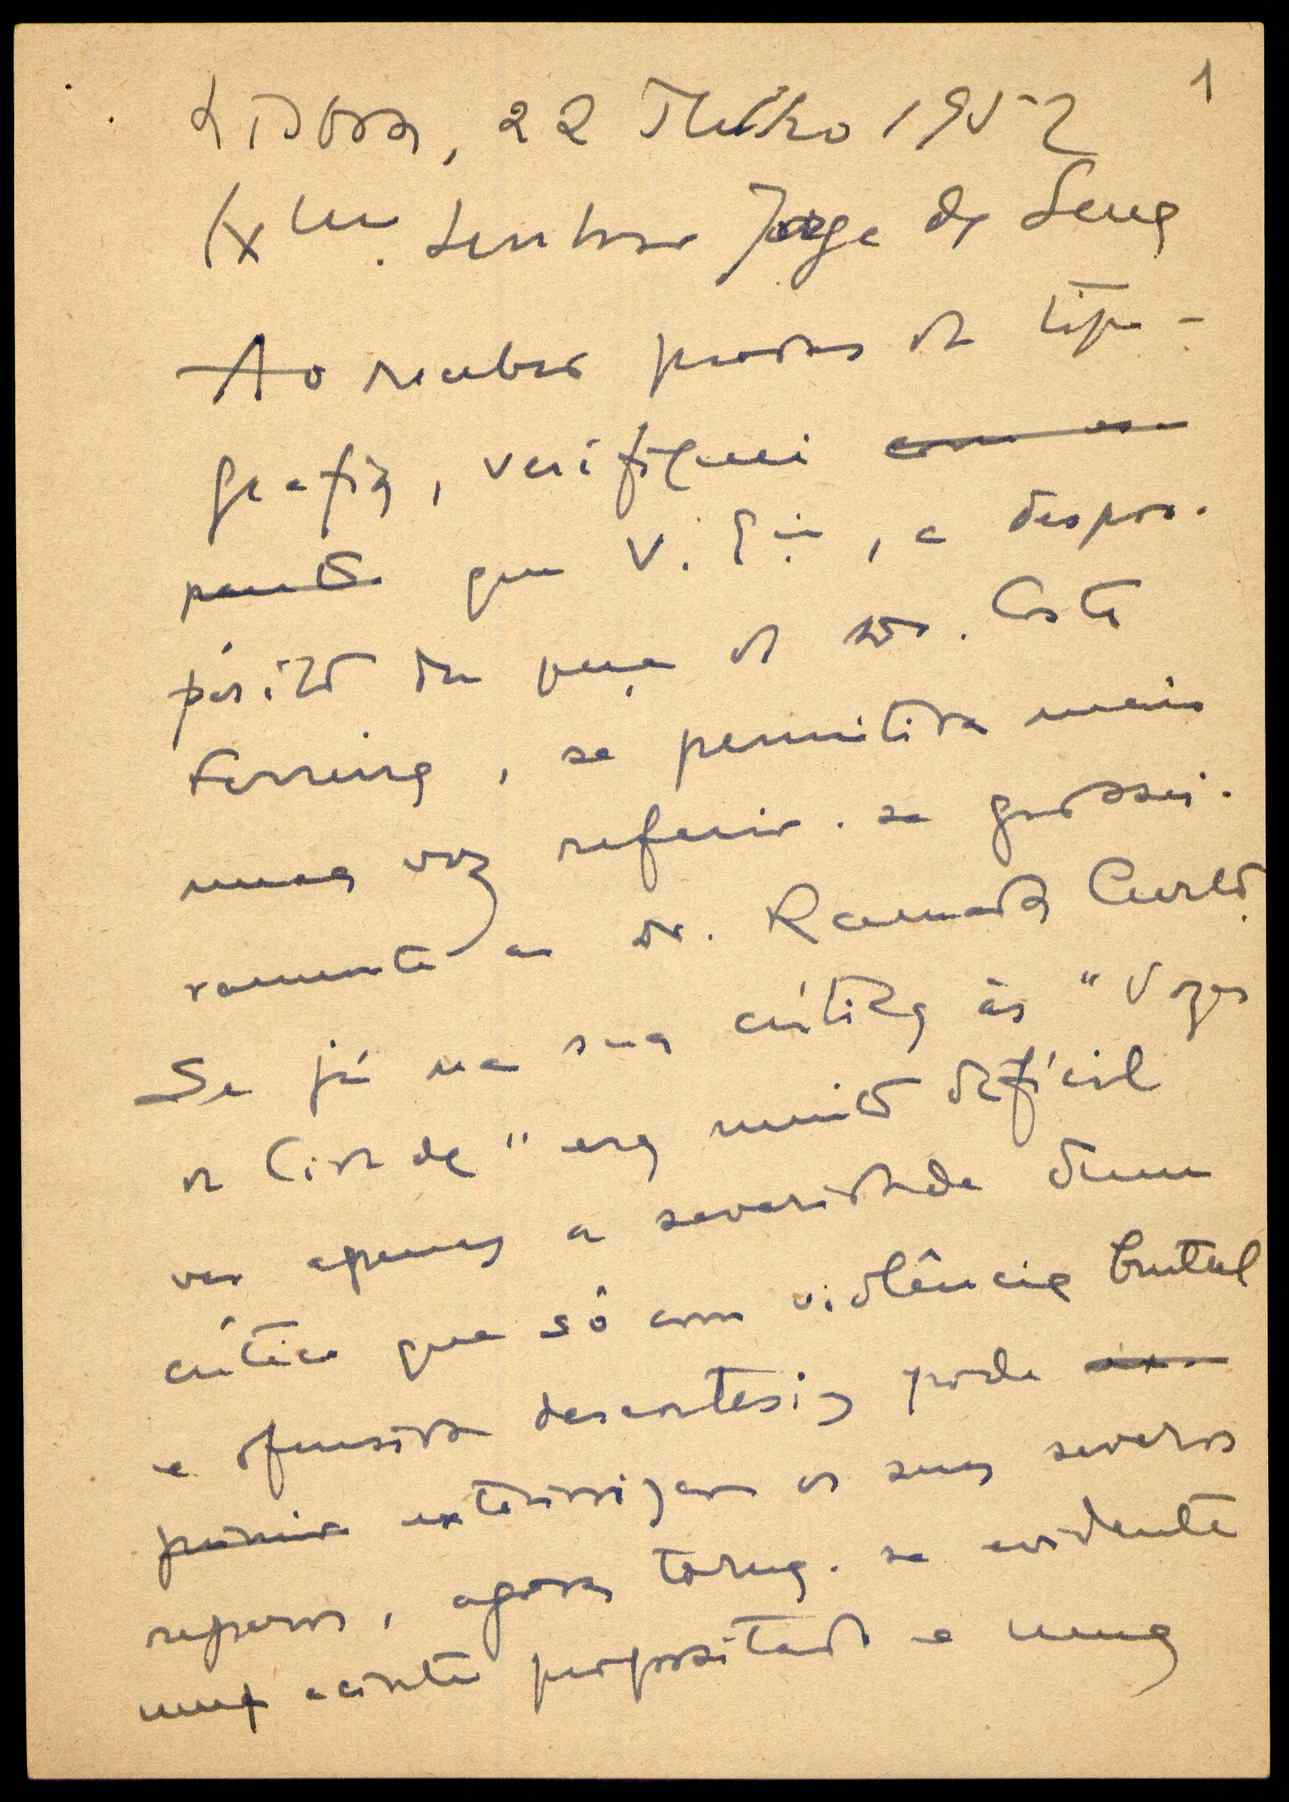 1
Lisboa, 22 Julho 1952
Exm. Senhor Jorge de Sena
Ao receber provas da tipo-
grafia, verifiquei com es-
panto que V. Ex.ia, a despro-
pósito da peça do sr. Costa
Ferreira, se permitira mais
uma vez referir-se grossei-
ramente ao dr. Ramada Curto.
Se já na sua crítica às "Vozes
da Cidade" era muito difícil
ver apenas a severidade dum
crítico que só com violência brutal
e ofensiva descortesia pode
exteriorizar os seus severos
reparos, agora torna-se evidente
um acinte propositado e uma